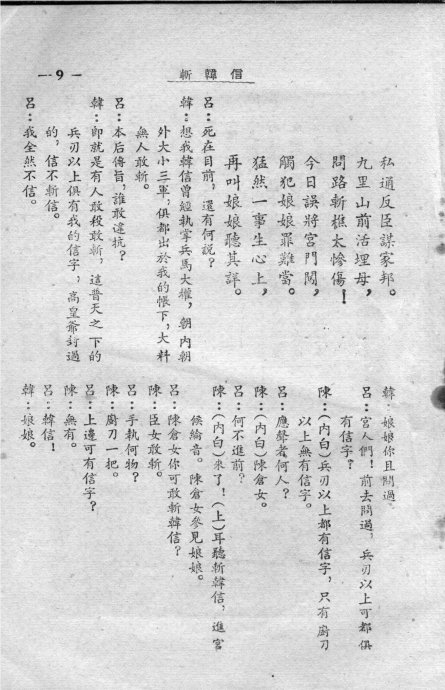 斬韓信
— 9 —
私通反臣謀家邦。
九里山前活埋母，
問路斬樵太慘傷！
今日誤將宮門闖，
觸犯娘娘罪難當。
猛然一事生心上，
再叫娘娘聽其詳。
呂：死在目前，還有何說？
韓：想我韓信曾經執掌兵馬大權，朝內朝
外大小三軍，俱都出於我的帳下，大料
無人敢斬。
呂：本后傳旨，誰敢違抗？
韓：即就是有人敢殺敢斬，這普天之下的
兵刃以上俱有我的信字，高皇爺封過
的，信不斬信。
呂：我全然不信。
韓：娘娘你且問過。
呂：宮人們！前去問過，兵刃以上可都俱
有信字？
陳：（內白）兵刃以上都有信字，只有廚刀
以上無有信字。
呂：應聲者何人？
陳：（內白）陳倉女。
呂：何不進前？
陳：（內白）來了！（上）耳聽斬韓信，進宮
候綸音。陳倉女參見娘娘。
呂：陳倉女你可敢斬韓信？
陳：臣女敢斬。
呂：手執何物？
陳：廚刀一把。
呂：上邊可有信字？
陳：無有。
呂：韓信！
韓：娘娘。